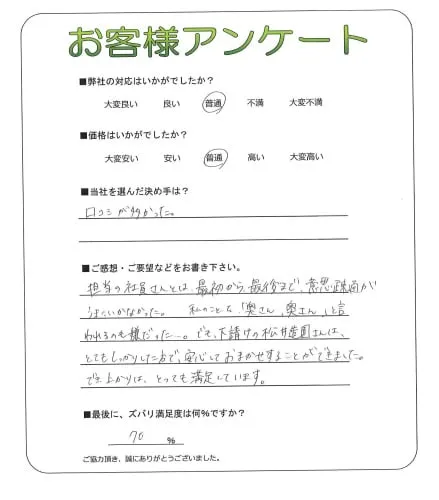 お客様アンケート
■弊社の対応はいかがでしたか?
大変良い 良い 普通 不満 大変不満
■価格はいかがでしたか?
大変安い 安い 普通 高い 大変高い
■当社を選んだ決め手は?
口コミが多かった。
■ご感想・ご要望などをお書き下さい。
担当の社員さんとは、最初から、最後まで、意思疎通が
うまくいかなかった。 私のことを、「奥さん、奥さん」と言
われるのも嫌だった…。でも、下請けの松井造園さんは、
とてもしっかりした方で、安心しておまかせすることができました。
で上がりは、とっても満足しています。
■最後に、ズバリ満足度は何%ですか?
70 %
ご協力頂き、誠にありがとうございました。